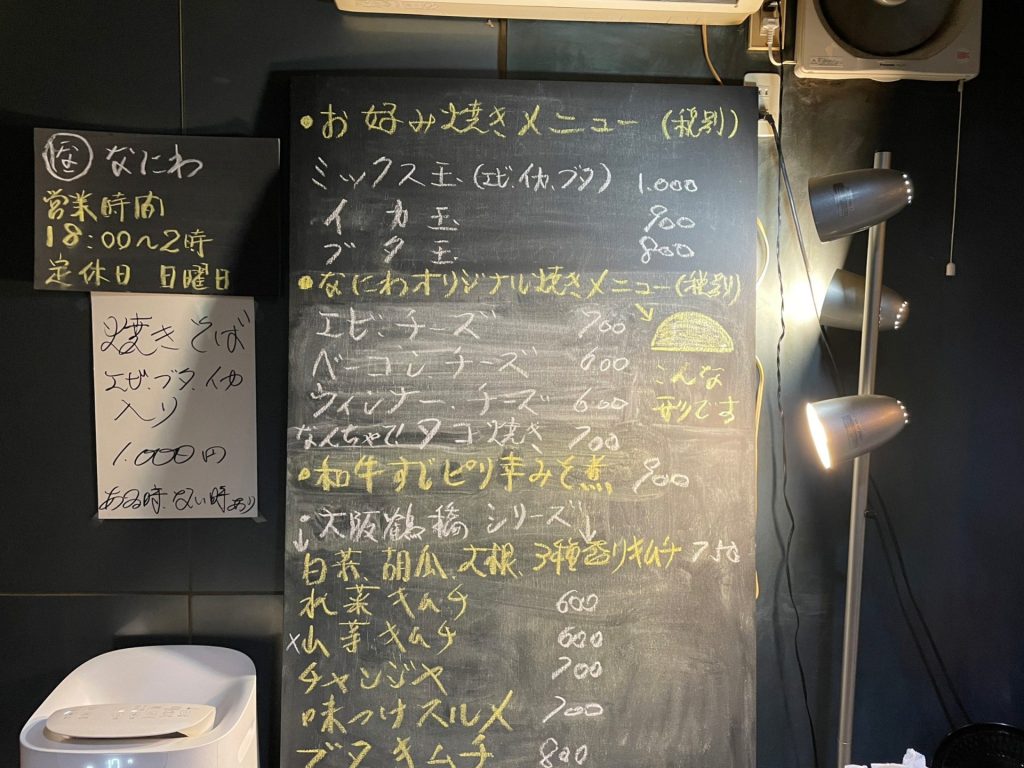 な なにわ
営業時間
18:00〜2時
定休日 日曜日
焼きそば
エビ.ブタ.イカ
入り
1.000円
ある時.ない時あり
•お好み焼きメニュー (税別)
ミックス玉.(エビ.イカ.ブタ) 1.000
イカ玉 900
ブタ玉 800
•なにわオリジナル焼きメニュー(税別)
エビ.チーズ 700
ベーコンチーズ 600
ウィンナー.チーズ 600
こんな
形です
なんちゃってタコ焼き 700
•和牛すじピリ辛みそ煮 900
•大阪鶴橋シリーズ
白菜.胡瓜.大根.3種盛りキムチ 750
水菜キムチ 600
×山芋キムチ 600
チャンジャ 700
味つけスルメ 700
ブタキムチ 800